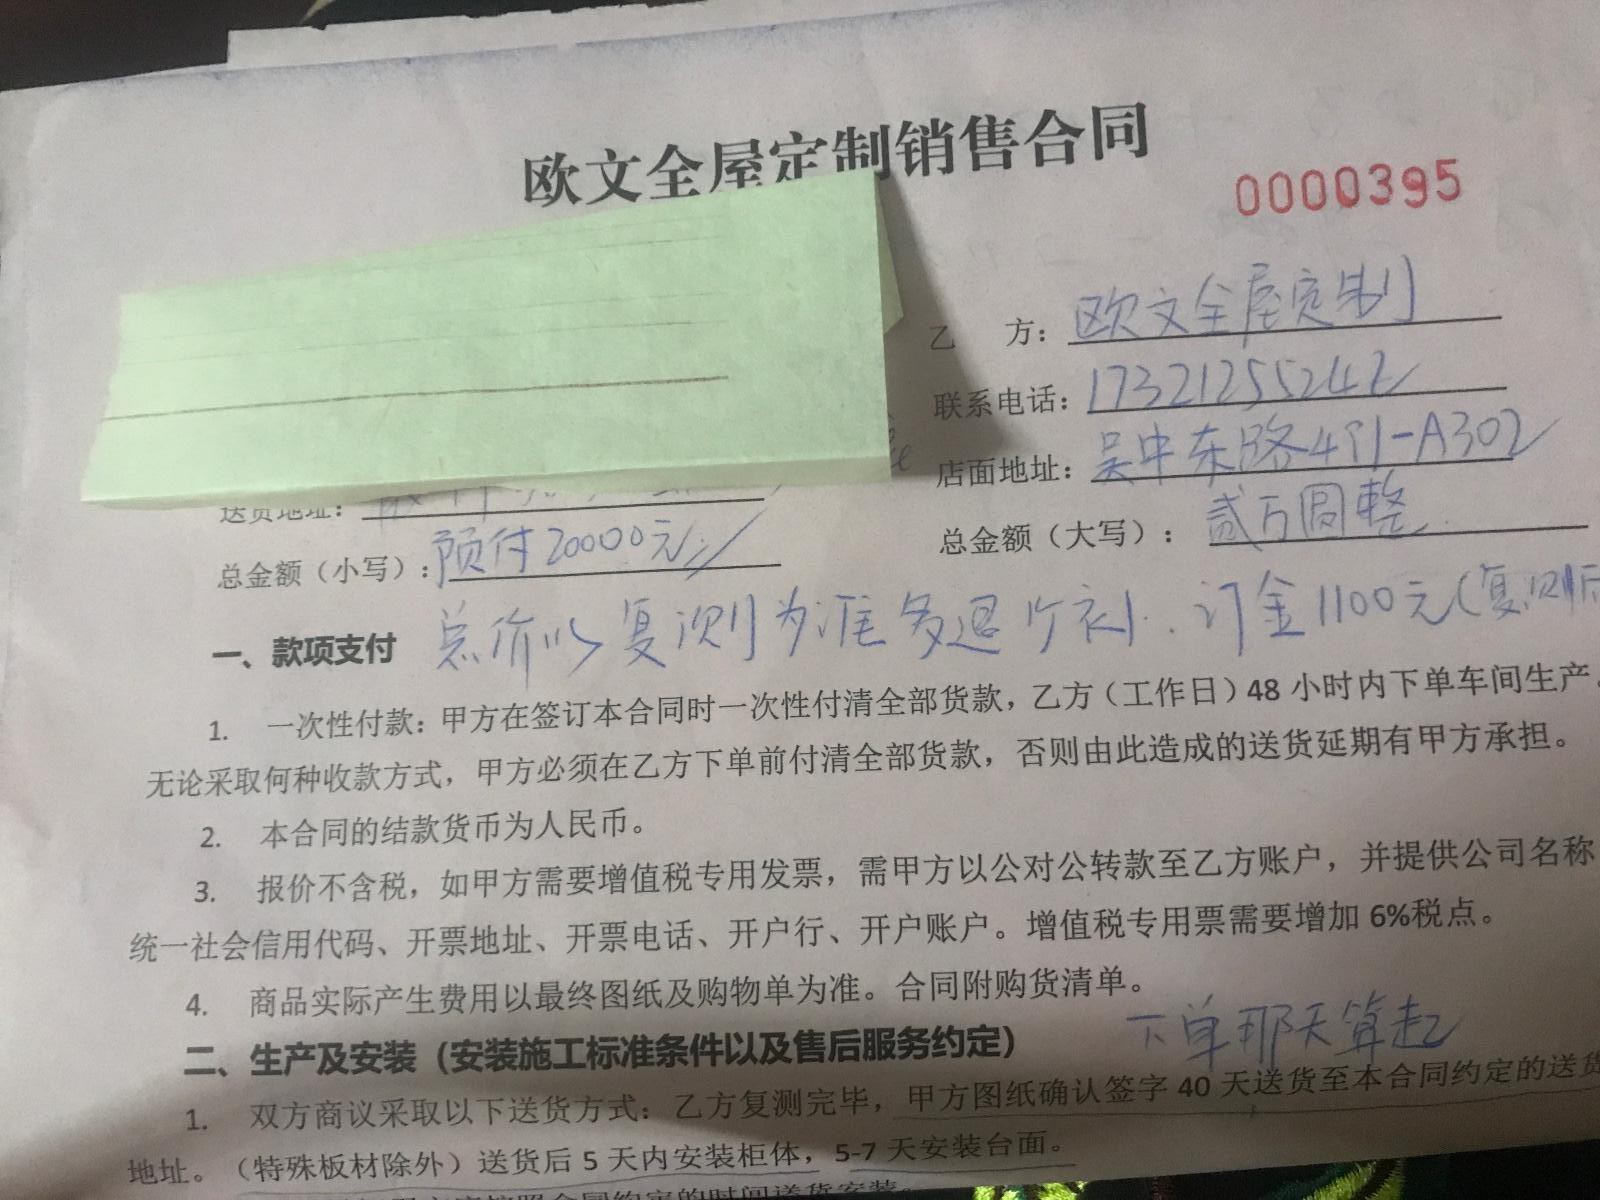 欧文全屋定制销售合同
0000395
乙 方：欧文全屋定制
联系电话：1732125524
店面地址：吴中东路4-A302
送货地址：
总金额（小写）：预付20000元
总金额（大写）：贰万圆整
一、款项支付 总价以复测为准多退少补. 订金1100元（复测后
1. 一次性付款：甲方在签订本合同时一次性付清全部货款，乙方（工作日）48小时内下单车间生产。
无论采取何种收款方式，甲方必须在乙方下单前付清全部货款，否则由此造成的送货延期有甲方承担。
2. 本合同的结款货币为人民币。
3. 报价不含税，如甲方需要增值税专用发票，需甲方以公对公转款至乙方账户，并提供公司名称
统一社会信用代码、开票地址、开票电话、开户行、开户账户。增值税专用票需要增加6%税点。
4. 商品实际产生费用以最终图纸及购物单为准。合同附购货清单。
下单那天算起
二、生产及安装（安装施工标准条件以及售后服务约定）
1. 双方商议采取以下送货方式：乙方复测完毕，甲方图纸确认签字40天送货至本合同约定的送货
地址。（特殊板材除外）送货后5天内安装柜体，5-7天安装台面。
合同约定的时间送货安装。